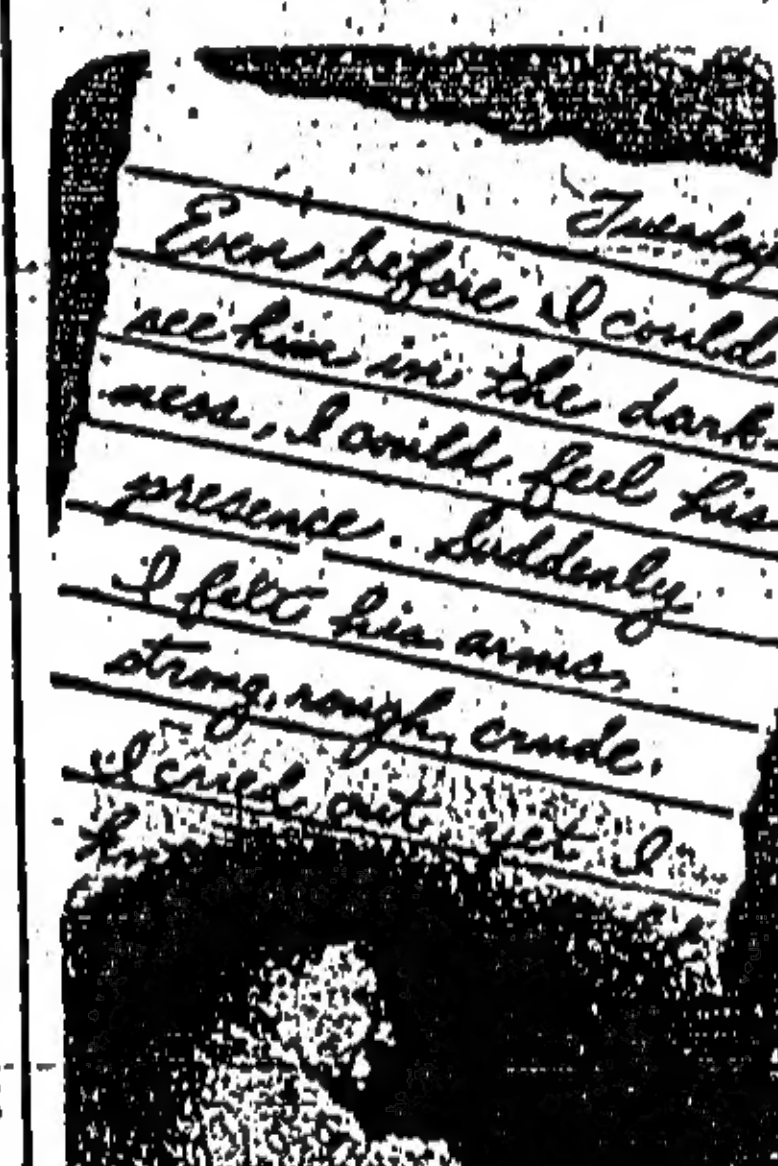 Tuesday
Even before I could
see him in the dark-
ness, I could feel his
presence. Suddenly
I felt his arms,
strong, rough, crude.
I cried out, yet I